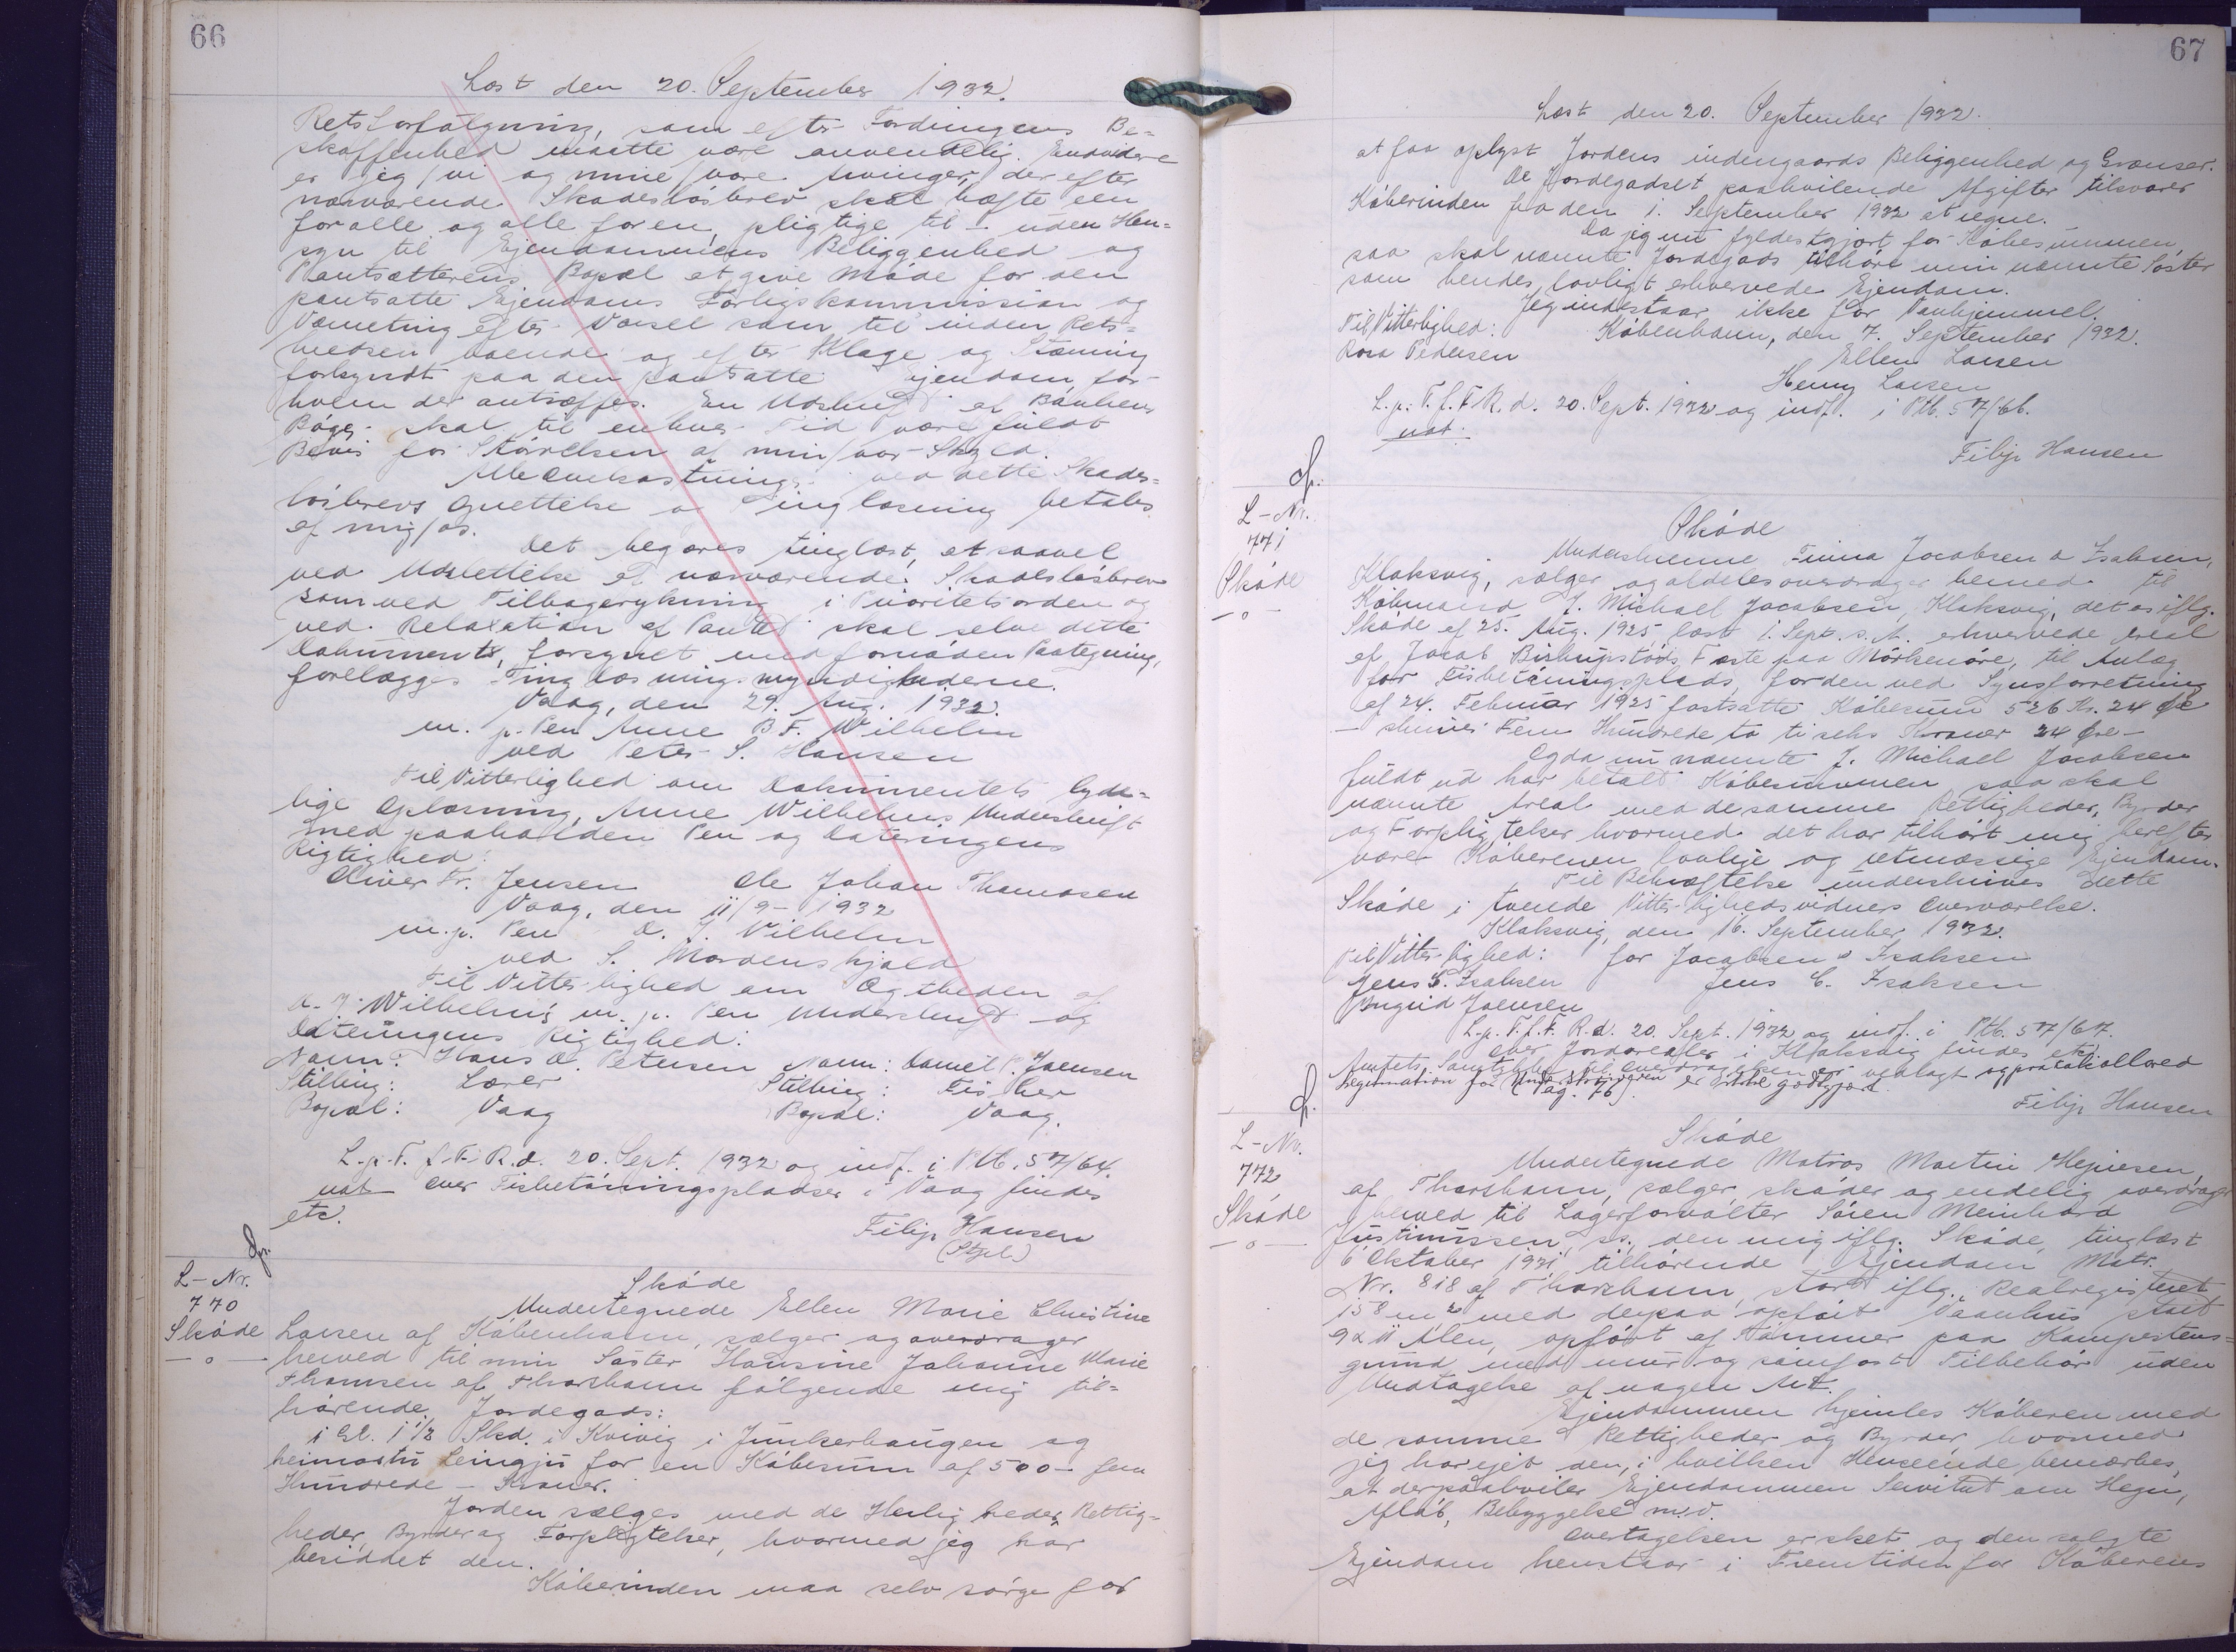 66
Læst den 20. September 1932.
Retsforfølgning, som efter Fordringens Be=
skaffenhed maatte være anvendelig. Endvidere
er jeg/vi og mine/vore Arvinger, der efter
nærværende Skadesløsbrev skal hæfte een
for alle og alle for en, pligtige til - uden Hen=
syn til Ejendommens Beliggenhed og
Pantsætterens Bopæl at give Møde for den
pantsatte Ejendoms Forligskommission og
Værneting efter Varsel som til inden Rets=
kredsen boende og efter Klage og Stævning
forkyndt paa den pantsatte Ejendom, for
hvem der antræffes. En Udskrift af Bankens
Bøger skal til enhver Tid være fuldt
Bevis for Størrelsen af min/vor Skyld.
Alle Omkostninger ved dette Skades=
løsbrevs Oprettelse og Tinglæsning betales
af mig/os.
Det begæres tinglæst, at saavel
ved Udslettelse af nærværende Skadesløsbrev
som ved Tilbagerykning i Prioritetsorden og
ved Relaxation af Pantet skal selve dette
Dokument, forsynet med fornøden Paategning,
forelægges Tinglæsningsmyndighederne.
Vaag, den 29. Aug. 1932.
m. p. Pen Anne B F. Wilhelm
ved Peter S. Hansen
Til Vitterlighed om Dokumentets lyde=
lige Oplæsning, Anne Wilhelms Underskrift
med paaholden Pen og Dateringens
Rigtighed:
Oliver Fr. Jensen Ole Johan Thomasen
Vaag, den 11/9 - 1932
m. p. Pen D. J. Vilhelm
ved S. Mordenskjold
Til Vitterlighed om Ægtheden af
D. J. Wilhelm's m. p. Pen Underskrift og
Dateringens Rigtighed:
Navn: Hans D. Petersen Navn: Daniel P. Joensen
Stilling: Lærer Stilling: Fisker
Bopæl: Vaag Bopæl: Vaag.
L. p. T. f. F. R. d. 20. Sept. 1932 og indf. i Ptb. 57/64.
not Over Fisketørringspladser i Vaag findes
etc.
Filip Hansen
(Stpl.)
L-Nr.
770
Skøde
-o-
Skøde
Undertegnede Ellen Marie Christine
Larsen af København, sælger og overdrager
herved til min Søster Hansine Johanne Marie
Thomsen af Thorshavn følgende mig til=
hørende Jordegods:
i Gl. 1 1/2 Skd. i Kvivig i Junkerhaugen og
heimastu Leingju for en Købesum af 500 - fem
Hundrede - Kroner.
Jorden sælges med de Herligheder, Rettig=
heder, Byrder og Forpligtelser, hvormed jeg har
besiddet den.
Køberinden maa selv sørge for
67
Læst den 20. September 1932.
at faa oplyst Jordens indengaards Beliggenhed og Grænser.
De Jordegodset paahvilende Afgifter tilsvarer
Køberinden fra den 1. September 1932 at regne.
Da jeg nu fyldestgjort for Købesummen,
saa skal nævnte Jordegods tilhøre min nævnte Søster
som hendes lovligt erhvervede Ejendom.
Jeg indestaar ikke for Vanhjemmel.
Til Vitterlighed: København, den 7. September 1932.
Rosa Pedersen Ellen Larsen
Henny Larsen
L. p. T. f. F. R. d. 20. Sept. 1932 og indf. i Ptb. 57/66.
not.
Filip Hansen
L-Nr.
771
Skøde
-o-
Skøde
Underskrevne Firma Jacobsen & Isaksen,
Klaksvig, sælger og aldeles overdrager hermed til
Købmand J. Michael Jacobsen, Klaksvig, det os iflg.
Skøde af 25. Aug. 1925, læst 1. Sept. s. A. erhvervede Areal
af Jacob Biskupstøds Fæste paa Mørkenøre, til Anlæg
for Fisketørringsplads, for den ved Synsforretning
af 24. Februar 1925 fastsatte Købesum 526 Kr. 24 Øre
- skriver Fem Hundrede to ti seks Kroner 24 Øre -
Og da nu nævnte J. Michael Jacobsen
fuldt ud har betalt Købesummen saa skal
nævnte Areal med de samme Rettigheder, Byrder
og Forpligtelser hvormed det har tilhørt mig herefter
være Køberenen lovlige og retmæssige Ejendom.
Til Bekræftelse underskrives dette
Skøde i tvende Vitterlighedsvidners Overværelse.
Klaksvig, den 16. September 1932.
Til Vitterlighed: for Jacobsen & Isaksen
Jens S. Isaksen Jens C. Isaksen
Ingrid Joensen
L. p. T. f. F. R. d. 20. Sept. 1932 og indf. i Ptb. 57/67.
Over Jordarealer i Klaksvig findes etc.
Amtets Samtykke til Overdragelsen er vedlagt og protokollered
(Pag. 76).
Legitimation for Underskriveren er ikke godtgjort.
Filip Hansen
L-Nr.
772
Skøde
-o-
Skøde
Undertegnede Matros Martin Hejnesen,
af Thorshavn, sælger, skøder og endelig overdrager
herved til Lagerforvalter Søren Meinhard
Justinussen, ss., den mig iflg. Skøde, tinglæst
6 Oktober 1931, tilhørende Ejendom Matr.
Nr. 818 af Thorshavn, stort iflg. Realregistret
158 m² med derpaa opført Vaanhus stort
9 x 11 Alen, opført af Tømmer paa Kampestens=
grund, med mur og sømfast Tilbehør uden
Undtagelse af nogen Art.
Ejendommen hjemles Køberen med
de samme Rettigheder og Byrder, hvormed
jeg har ejet den, i hvilken Henseende bemærkes,
at derpaahviler Ejendommen Servitut om Hegn,
Afløb, Bebyggelse m.v.
Overtagelsen er sket og den solgte
Ejendom henstaar i Fremtiden for Køberens